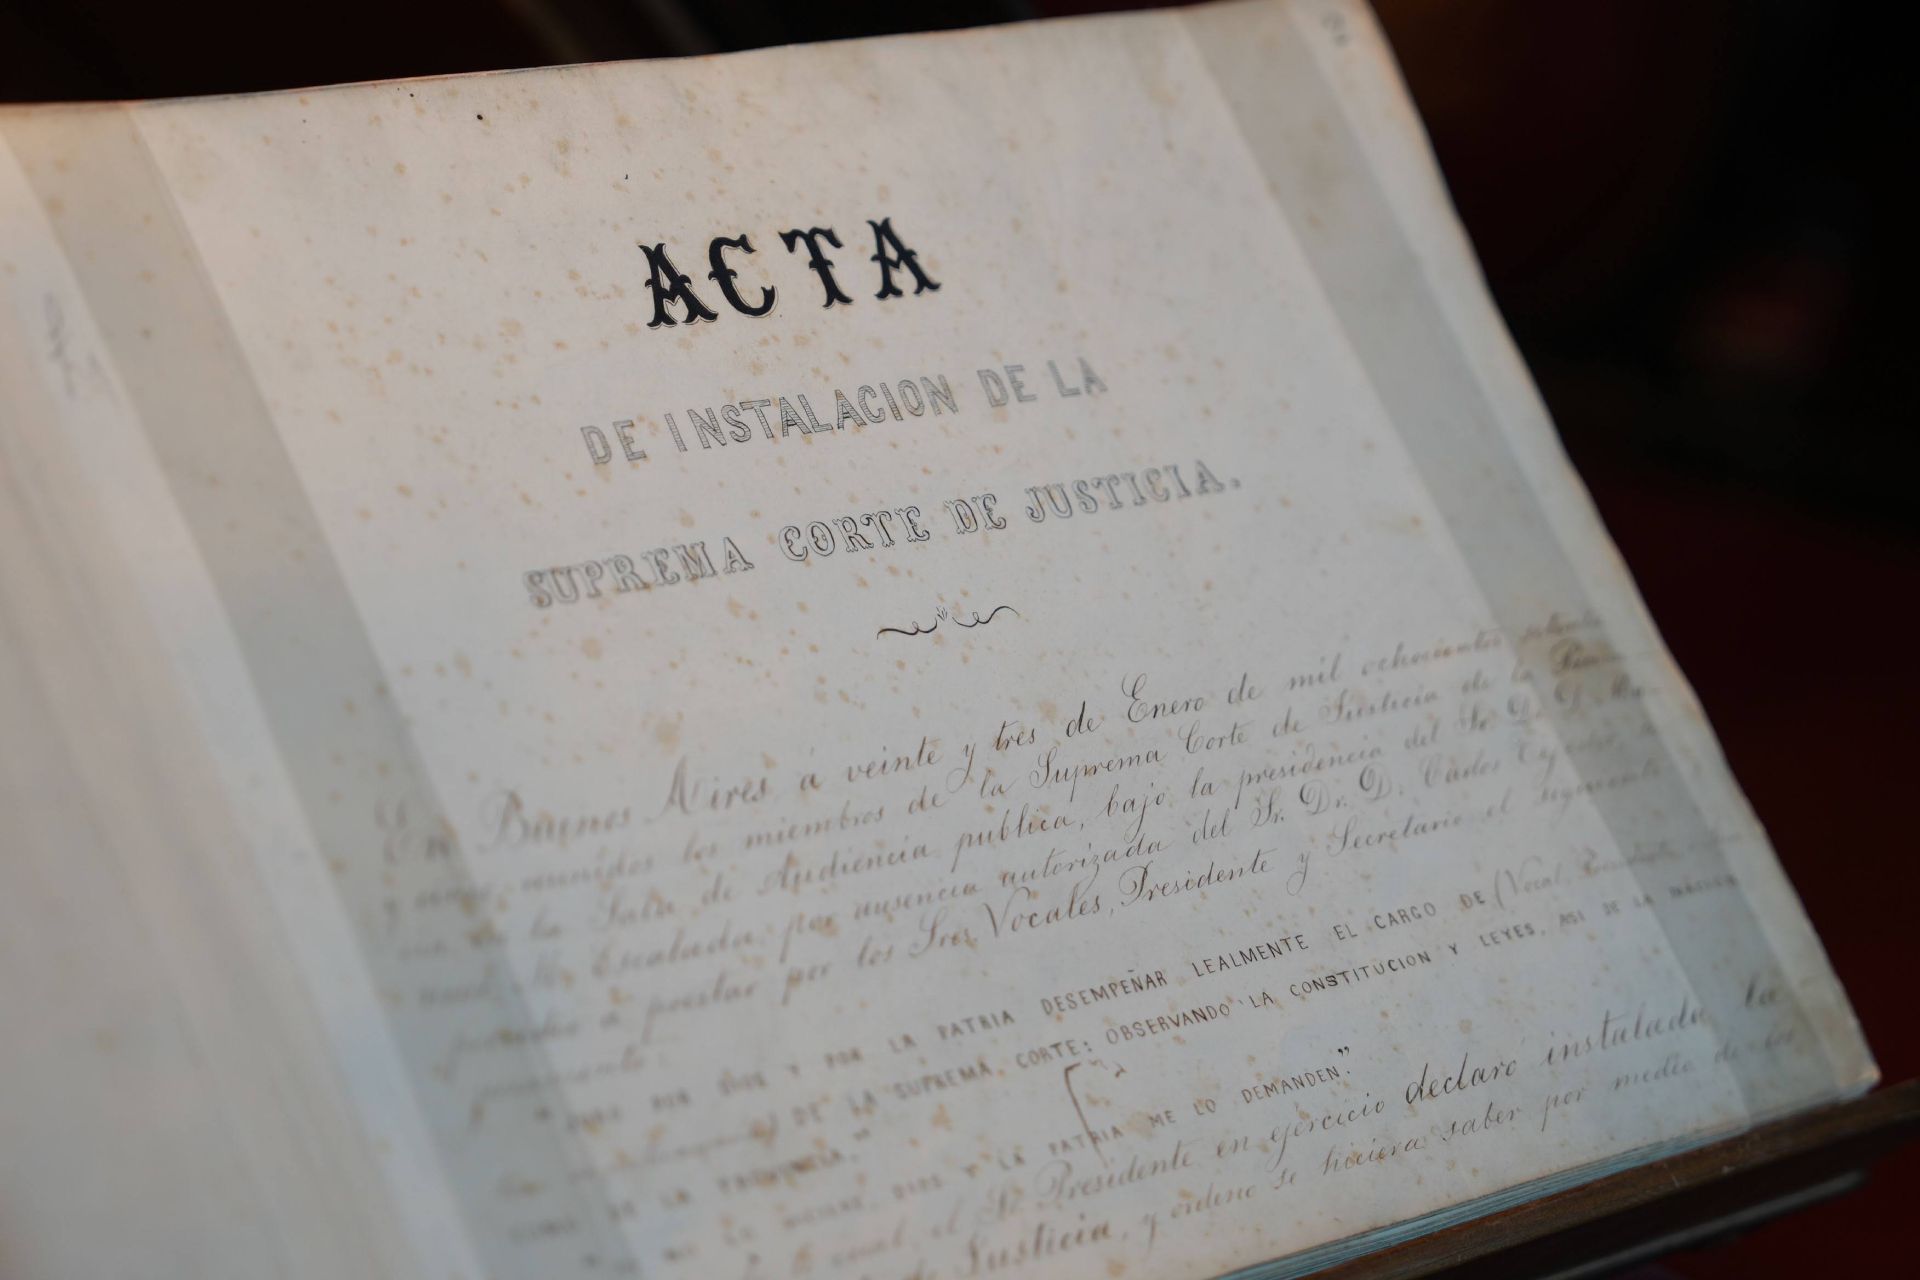 ACTA
DE INSTALACION DE LA
SUPREMA CORTE DE JUSTICIA.
En Buenos Aires á veinte y tres de Enero de mil ochocientos setenta
y reunidos los miembros de la Suprema Corte de Justicia de la
la Sala de Audiencia publica, bajo la presidencia del Sr. D. D.
Escalada, por ausencia autorizada del Sr. Dr. D. Carlos
á prestar por los Sres Vocales, Presidente y Secretario el siguiente
juramento:
"JURO POR DIOS Y POR LA PATRIA DESEMPEÑAR LEALMENTE EL CARGO DE (Vocal, Presidente
DE LA SUPREMA CORTE: OBSERVANDO LA CONSTITUCION Y LEYES, ASI DE LA
COMO DE LA PROVINCIA."
NO LO HICIERE, DIOS Y LA PATRIA ME LO DEMANDEN."
lo cual el Sr. Presidente en ejercicio declaró instalada la
de Justicia, y ordenó se hiciera saber por medio de